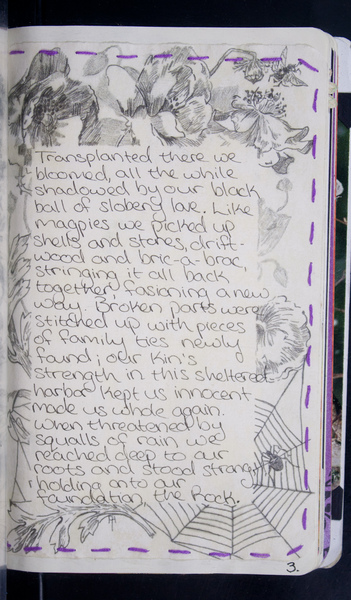 Transplanted there we
bloomed, all the while
shadowed by our black
ball of slobery love. Like
magpies we picked up
shells and stones, drift-
wood and bric-a-brac,
stringing it all back
together, fasioning a new
way. Broken parts were
stitched up with pieces
of family ties newly
found; our Kin's
strength in this sheltered
harbor kept us innocent
made us whole again.
When threatened by
squalls of rain we
reached deep to our
roots and stood stronger
holding onto our
foundation, the Rock.
3.